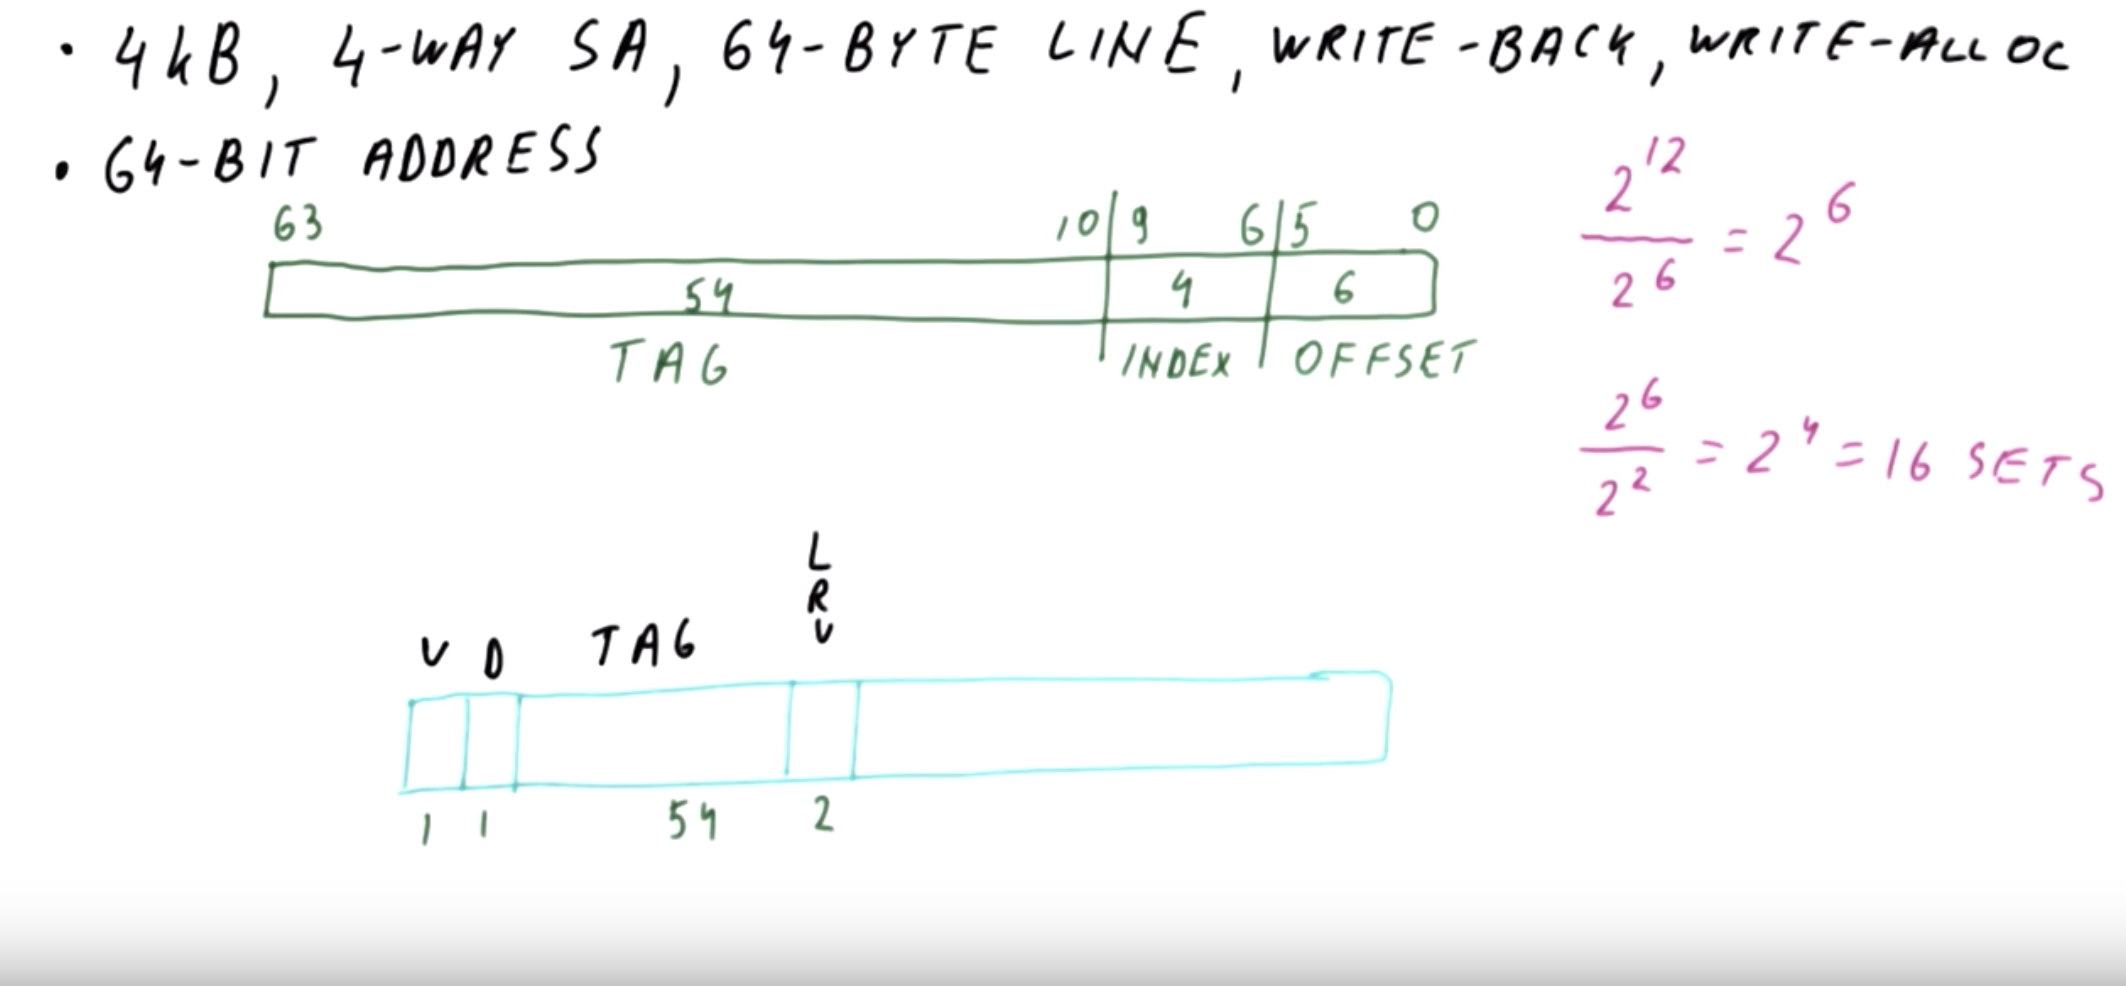 • 4kB, 4-WAY SA, 64-BYTE LINE, WRITE-BACK, WRITE-ALLOC
• 64-BIT ADDRESS
63 10 9 6 5 0
54 4 6
TAG INDEX OFFSET
2^12 / 2^6 = 2^6
2^6 / 2^2 = 2^4 = 16 SETS
V D TAG LRU
1 1 54 2